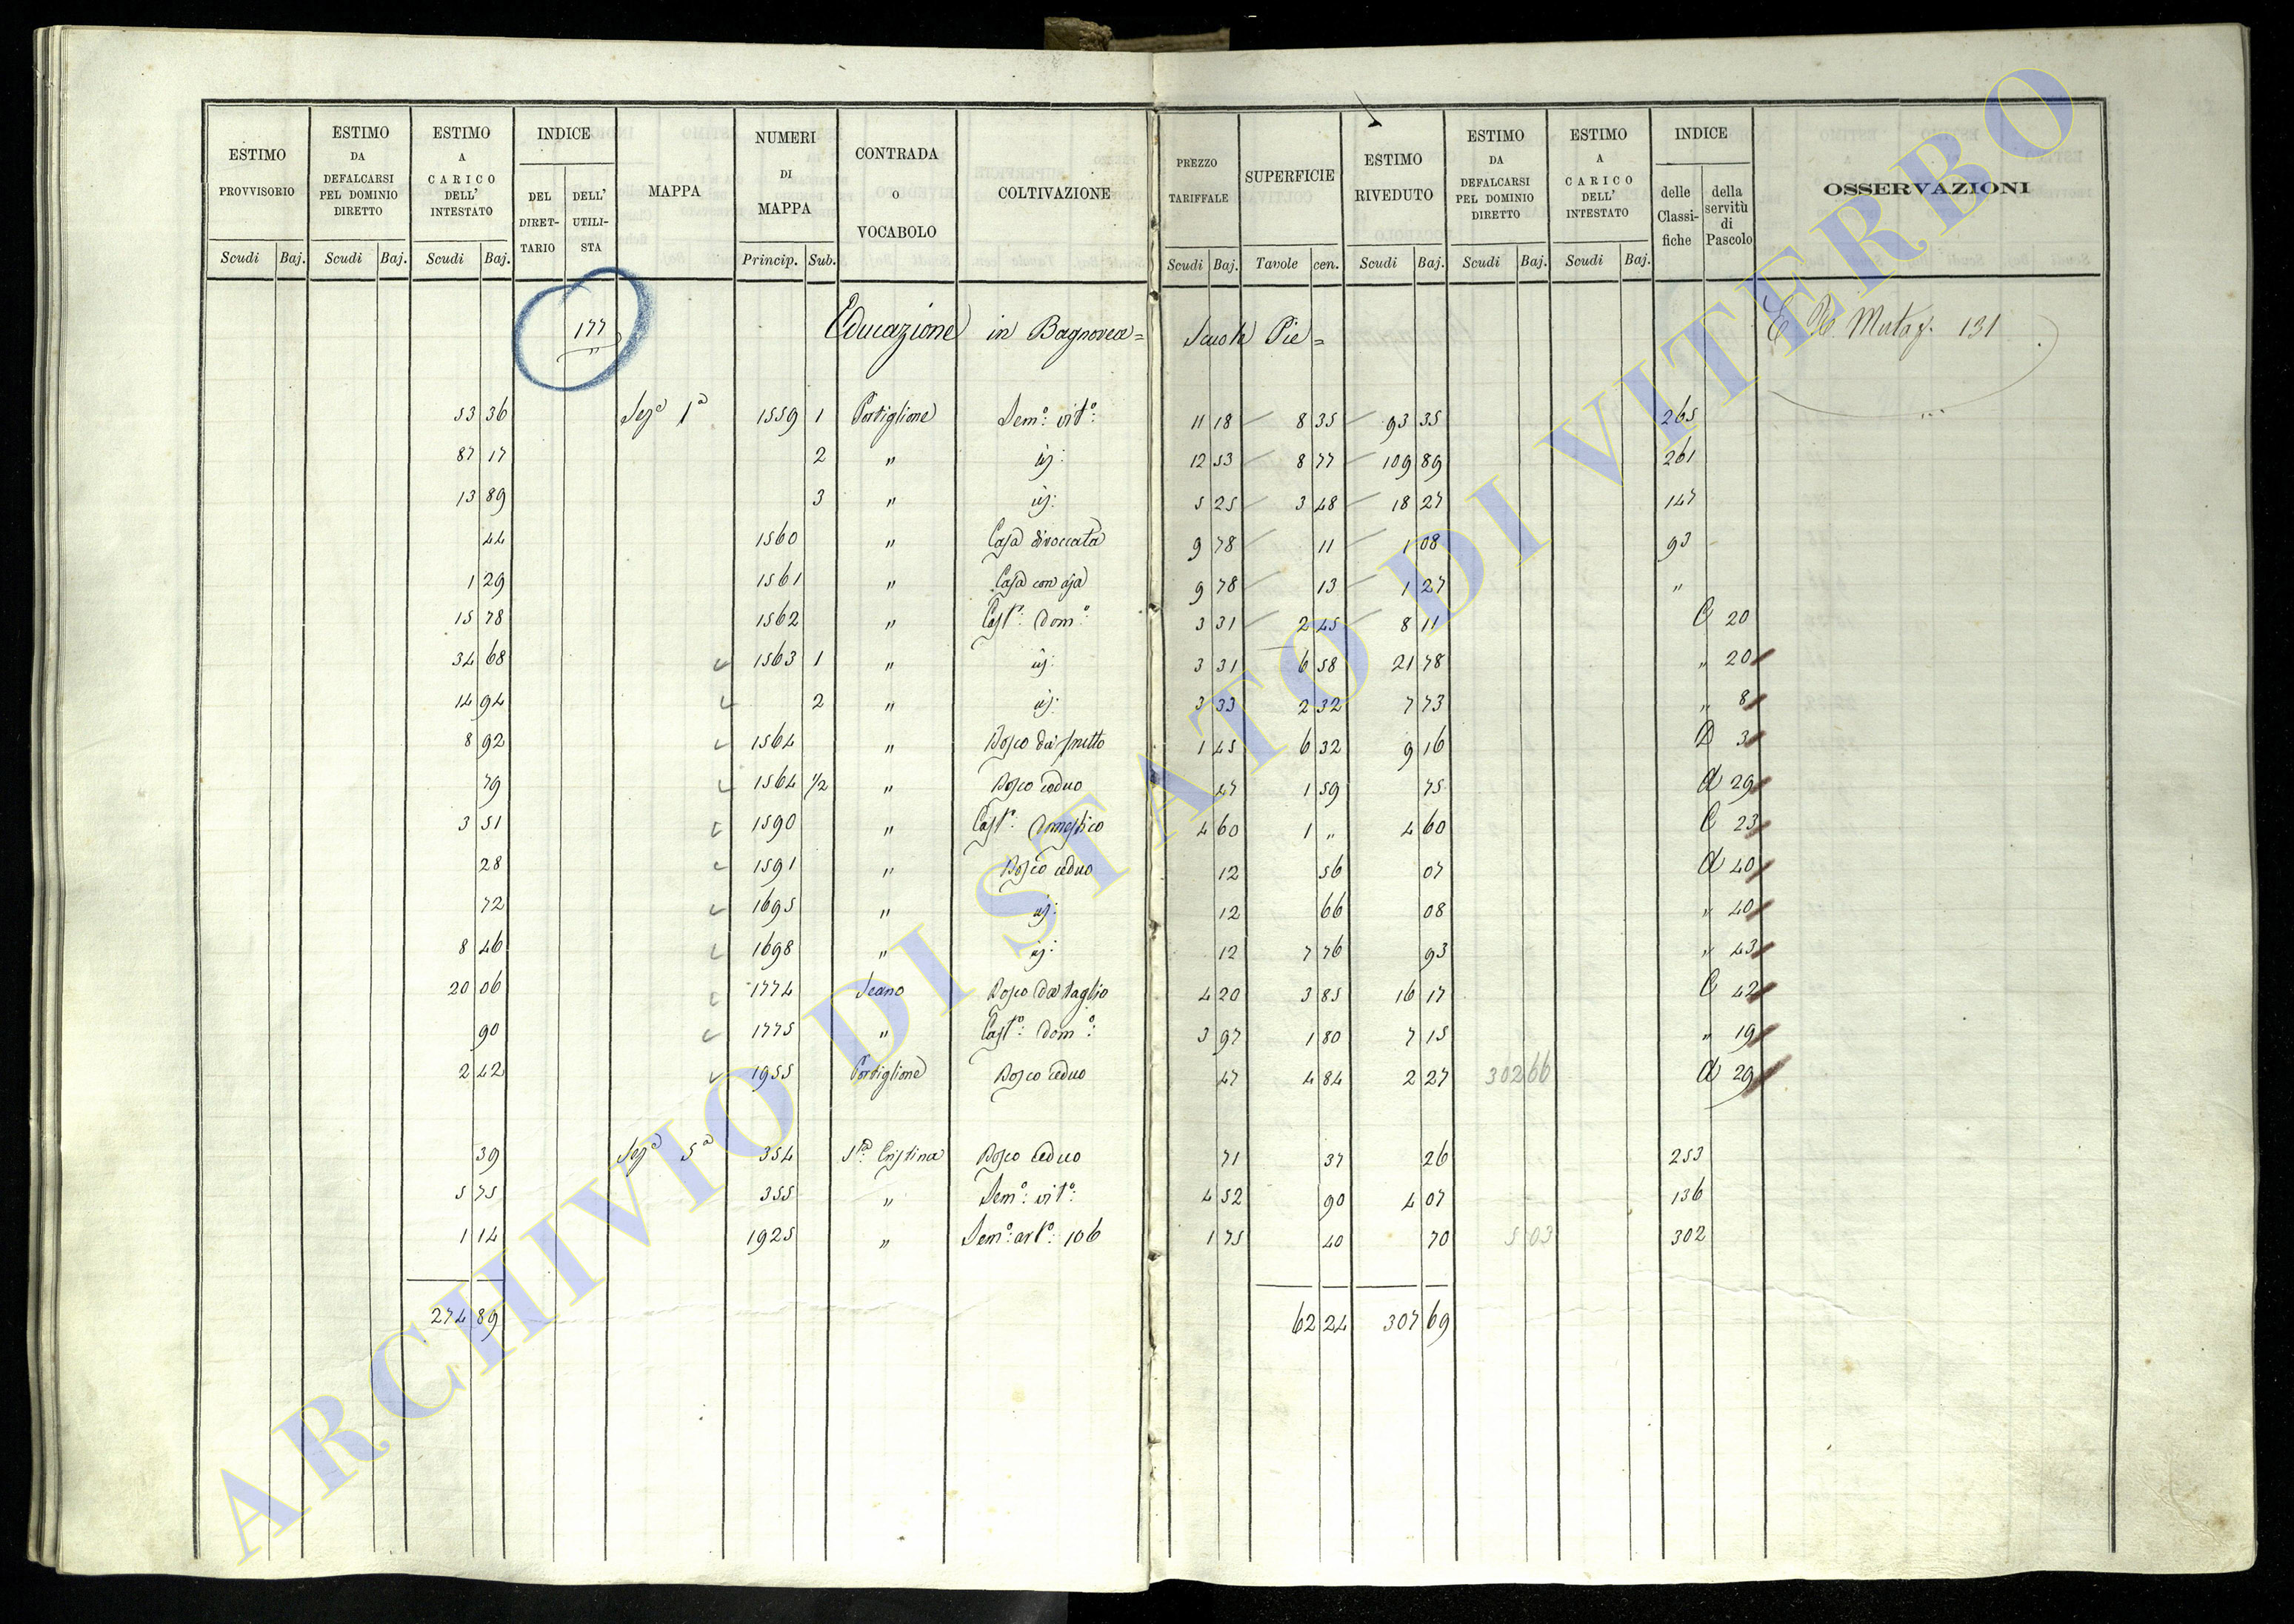 ESTIMO PROVVISORIO | ESTIMO DA DEFALCARSI PEL DOMINIO DIRETTO | ESTIMO A CARICO DELL' INTESTATO | INDICE DEL DIRET-TARIO | DELL' UTILI-STA | MAPPA | NUMERI DI MAPPA | CONTRADA O VOCABOLO | COLTIVAZIONE | PREZZO TARIFFALE | SUPERFICIE | ESTIMO RIVEDUTO | ESTIMO DA DEFALCARSI PEL DOMINIO DIRETTO | ESTIMO A CARICO DELL' INTESTATO | INDICE delle Classi-fiche | della servitù di Pascolo | OSSERVAZIONI
Scudi Baj. | Scudi Baj. | Scudi Baj. | Princip. Sub. | Scudi Baj. | Tavole cen. | Scudi Baj. | Scudi Baj. | Scudi Baj.
177 Educazione in Bagnorea = Scuole Pie = 131
53 36 Sezᵉ 1ª 1559 1 Portiglione Semº: vitº: 11 18 8 35 93 35 265
87 17 2 " id: 12 53 8 77 109 89 261
13 89 3 " id: 5 25 3 48 18 27 147
44 1560 " Casa diroccata 9 78 11 1 08 93
1 29 1561 " Casa con aja 9 78 13 1 27 "
15 78 1562 " Castº: Domº: 3 31 2 45 8 11 C 20
34 68 1563 1 " id: 3 31 6 58 21 78 " 20
14 94 2 " id: 3 33 2 32 7 73 " 8
8 92 1564 " Bosco da frutto 1 45 6 32 9 16 D 3
79 1564 1/2 " Bosco ceduo 47 1 59 75 A 29
3 51 1590 " Castº: Domestico 4 60 1 " 4 60 C 23
28 1591 " Bosco ceduo 12 56 07 A 40
72 1695 " id: 12 66 08 " 40
8 46 1698 " id: 12 7 76 93 " 43
20 06 1774 Seano Bosco da taglio 4 20 3 85 16 17 C 42
90 1775 " Castº: Domº: 3 97 1 80 7 15 " 19
2 42 1955 Portiglione Bosco ceduo 47 4 84 2 27 302 66 A 29
39 Sezᵉ 5ª 354 Sᵗᵃ: Cristina Bosco Ceduo 71 37 26 253
5 75 355 " Semº: vitº: 4 52 90 4 07 136
1 14 1925 " Semº: artº: 106 1 75 40 70 5 03 302
274 89 62 24 307 69
ARCHIVIO DI STATO DI VITERBO